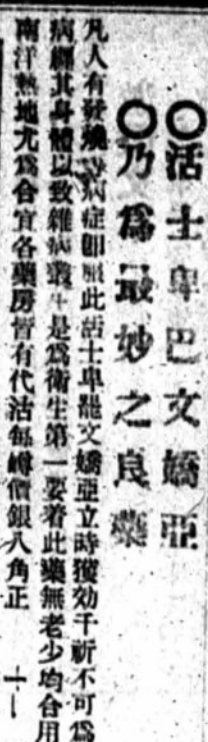 ○活士卑巴文嬌亞
○乃爲最妙之良藥
凡人有發燒等病症即服此活士卑罷文嬌亞立時獲効千祈不可爲
病纏其身體以致雜病叢生是爲衛生第一要着此藥無老少均合用
南洋熱地尤爲合宜各藥房皆有代沽每罇價銀八角正 十一